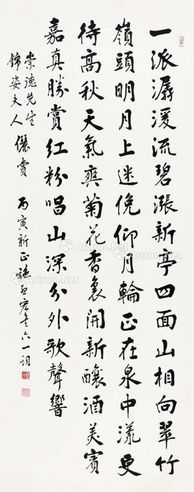 一派潺湲流碧漲新亭四面山相向翠竹
嶺頭明月上迷俛仰月輪正在泉中漾更
待高秋天氣爽菊花香裏開新釀酒美賓
嘉真勝賞紅粉唱山深分外歌聲響
崇德先生
錦姿夫人 儷賞 丙寅新正 六一詞